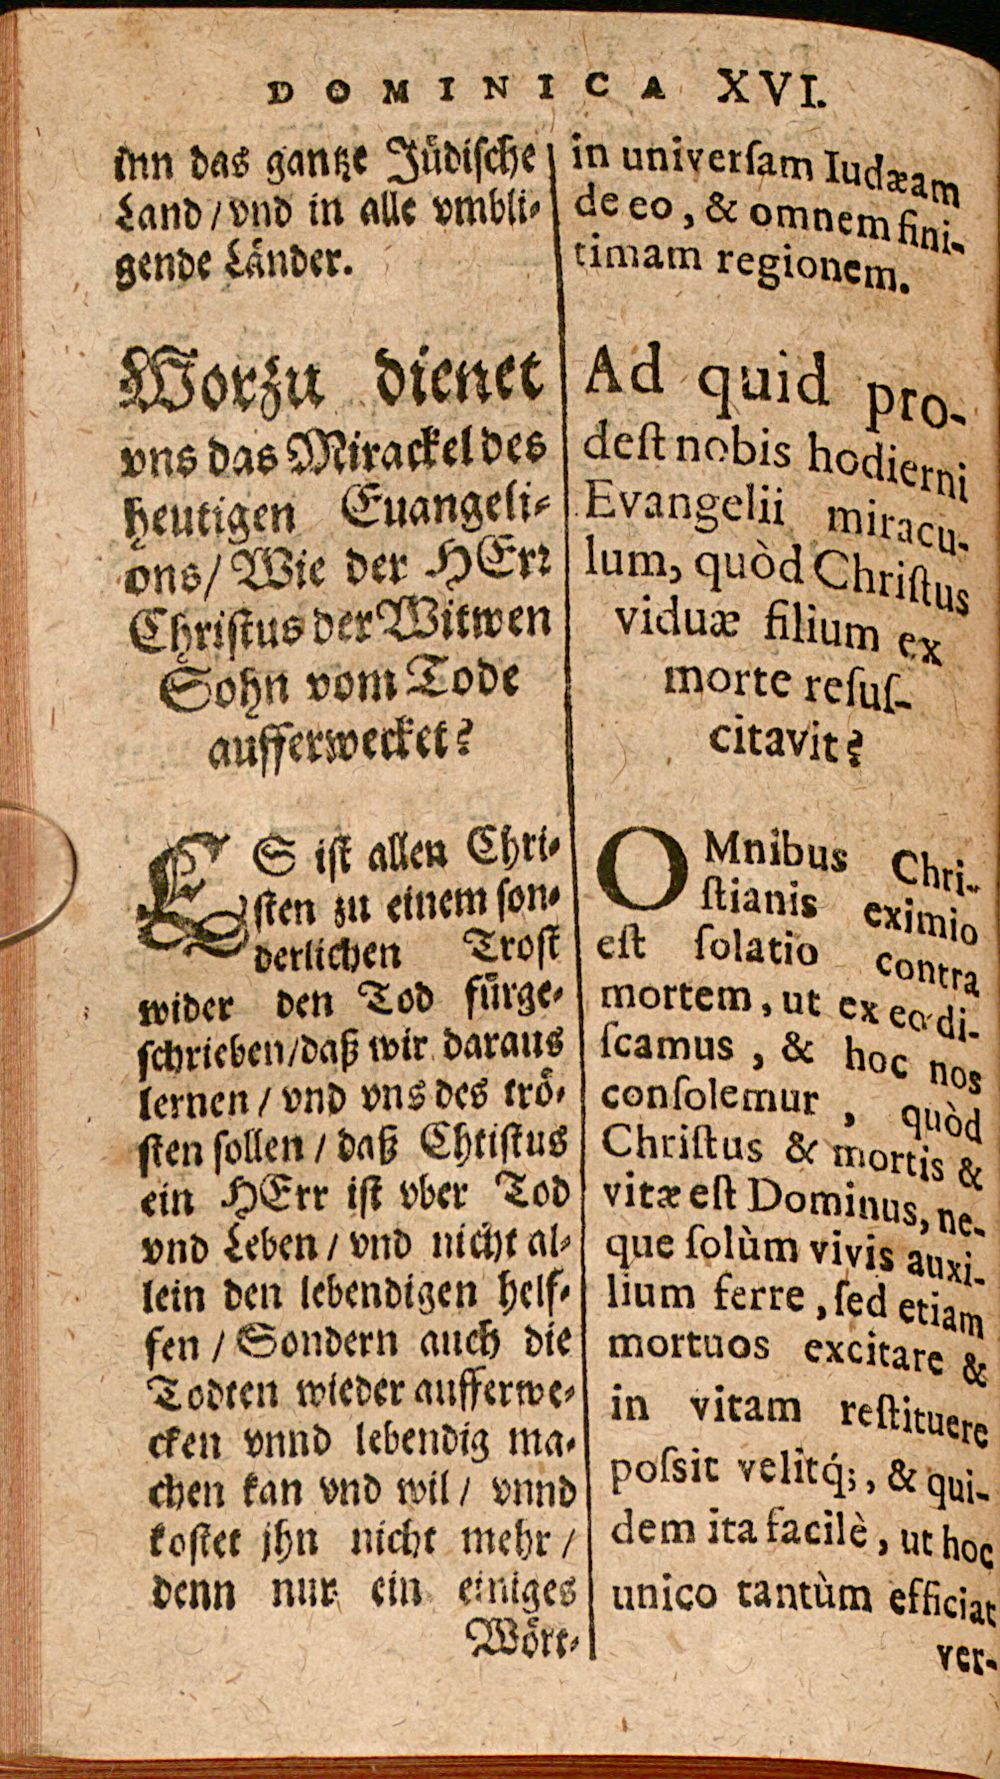 DOMINICA XVI.
inn das gantze Jüdische
Land / vnd in alle vmbli-
gende Länder.
Worzu dienet
vns das Mirackel des
heutigen Euangeli-
ons / Wie der HErr
Christus der Witwen
Sohn vom Tode
aufferwecket?
ES ist allen Chri-
sten zu einem son-
derlichen Trost
wider den Tod fürge-
schrieben / daß wir daraus
lernen / vnd vns des trö-
sten sollen / daß Chtistus
ein HErr ist vber Tod
vnd Leben / vnd nicht al-
lein den lebendigen helf-
fen / Sondern auch die
Todten wieder aufferwe-
cken vnnd lebendig ma-
chen kan vnd wil / vnnd
kostet jhn nicht mehr /
denn nur ein einiges
Wört-
in universam Iudæam
de eo, & omnem fini-
timam regionem.
Ad quid pro-
dest nobis hodierni
Evangelii miracu-
lum, quòd Christus
viduæ filium ex
morte resus-
citavit?
OMnibus Chri-
stianis eximio
est solatio contra
mortem, ut ex eo di-
scamus, & hoc nos
consolemur, quòd
Christus & mortis &
vitæ est Dominus, ne-
que solùm vivis auxi-
lium ferre, sed etiam
mortuos excitare &
in vitam restituere
possit velitq́;, & qui-
dem ita facilè, ut hoc
unico tantùm efficiat
ver-